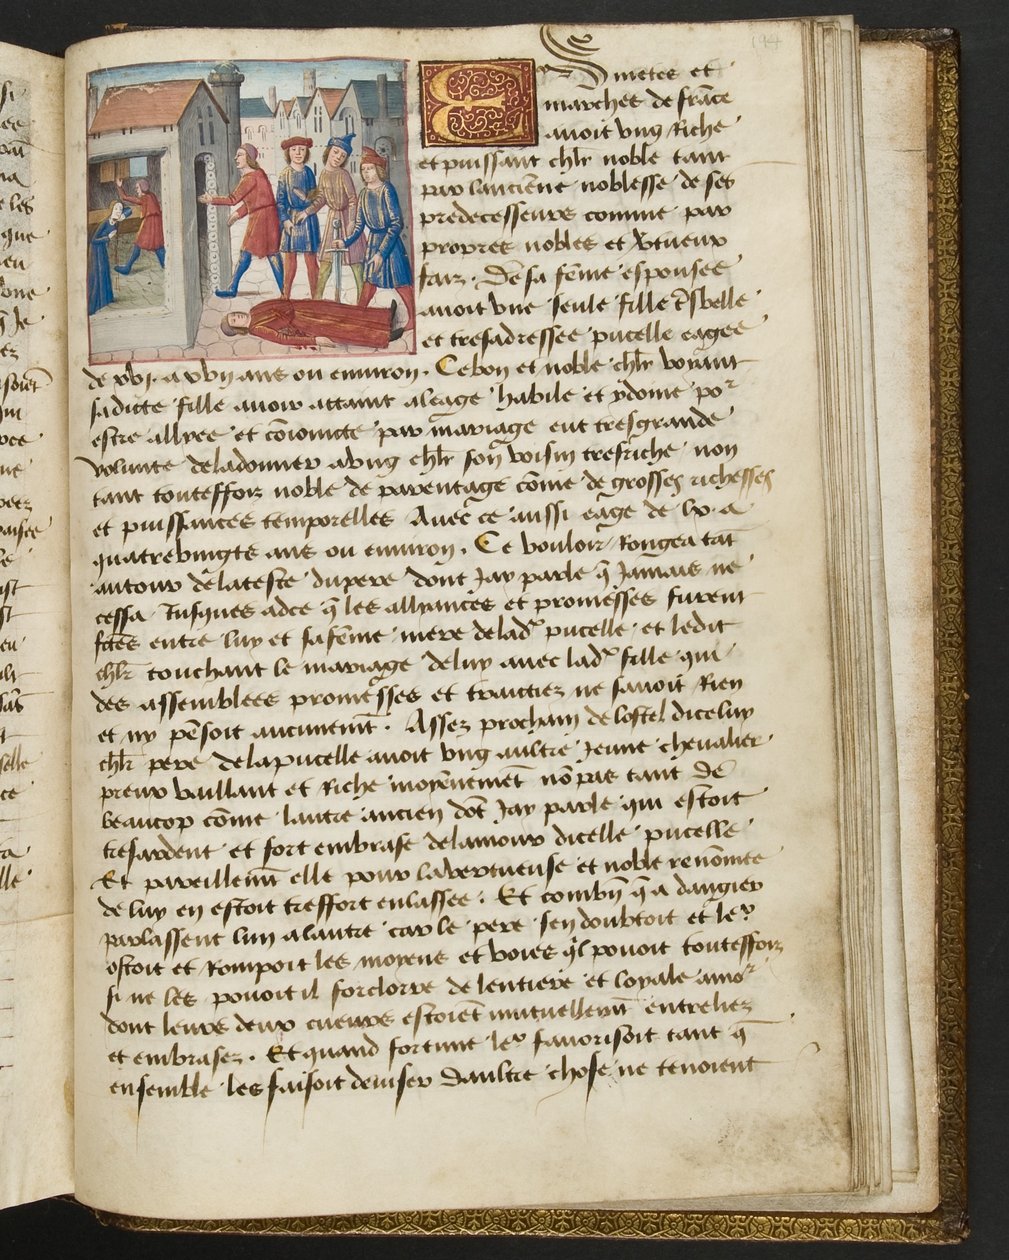 194
Es metes et
marches de frāce
auoit vng Riche
et puissant chlr noble tant
par lancienne noblesse de ses
predecesseurs comme par
propres nobles et v̄tueux
faiz . De sa fēme espousee
auoit vne seule fille tresbelle
et tresadressee pucelle eagee
de xvj. a xvij ans ou enuiron . Ce bon et noble chlr voyant
sadicte fille auoir attaint a leage habile et ydome por
estre allyee et cōioincte par mariage eut tresgrande
volunte de la donner a vng chlr son voisin tresriche non
tant touteffoiz noble de parentage cōme de grosses richesses
et puissances temporelles Auec ce aussi eage de lx. a
quatrevingts ans ou enuiron . Ce vouloir Rongea tāt
autour de la teste du pere dont Jay parle q̄ Jamais ne
cessa Jusques adce q̄ les allyances et promesses furent
fctēs entre luy et sa fēme mere de lad pucelle et ledit
chlr touchant le mariage de luy auec lad fille qui
des assemblees promesses et traictiez ne sauoit Rien
et ny pēsoit aucunemt̄ . Assez prochain de lostel diceluy
chlr pere de la pucelle auoit vng aultre Jeune cheualier
preux vaillant et Riche moyennemēt nō pas tant de
beaucop cōme lautre ancien dōt Jay parle qui estoit
tresardent et fort embrase de lamour dicelle pucelle
Et pareillemt̄ elle pour la vertueuse et noble renōmee
de luy en estoit treffort enlassee . Et combn̄ q̄ a dangier
parlassent lun a lautre car le pere sen doubtoit et ler
ostoit et Rompoit les moyens et voies ql̄ pouoit touteffoiz
si ne les pouoit il forclorre de lentiere et loyale amor
dont leurs deux cueurs estoiēt mutuellemt̄ entreliez
et embrasez . Et quand fortune ler fauorisoit tant q̄
ensemble les faisoit deuiser daultre chose ne tenoient